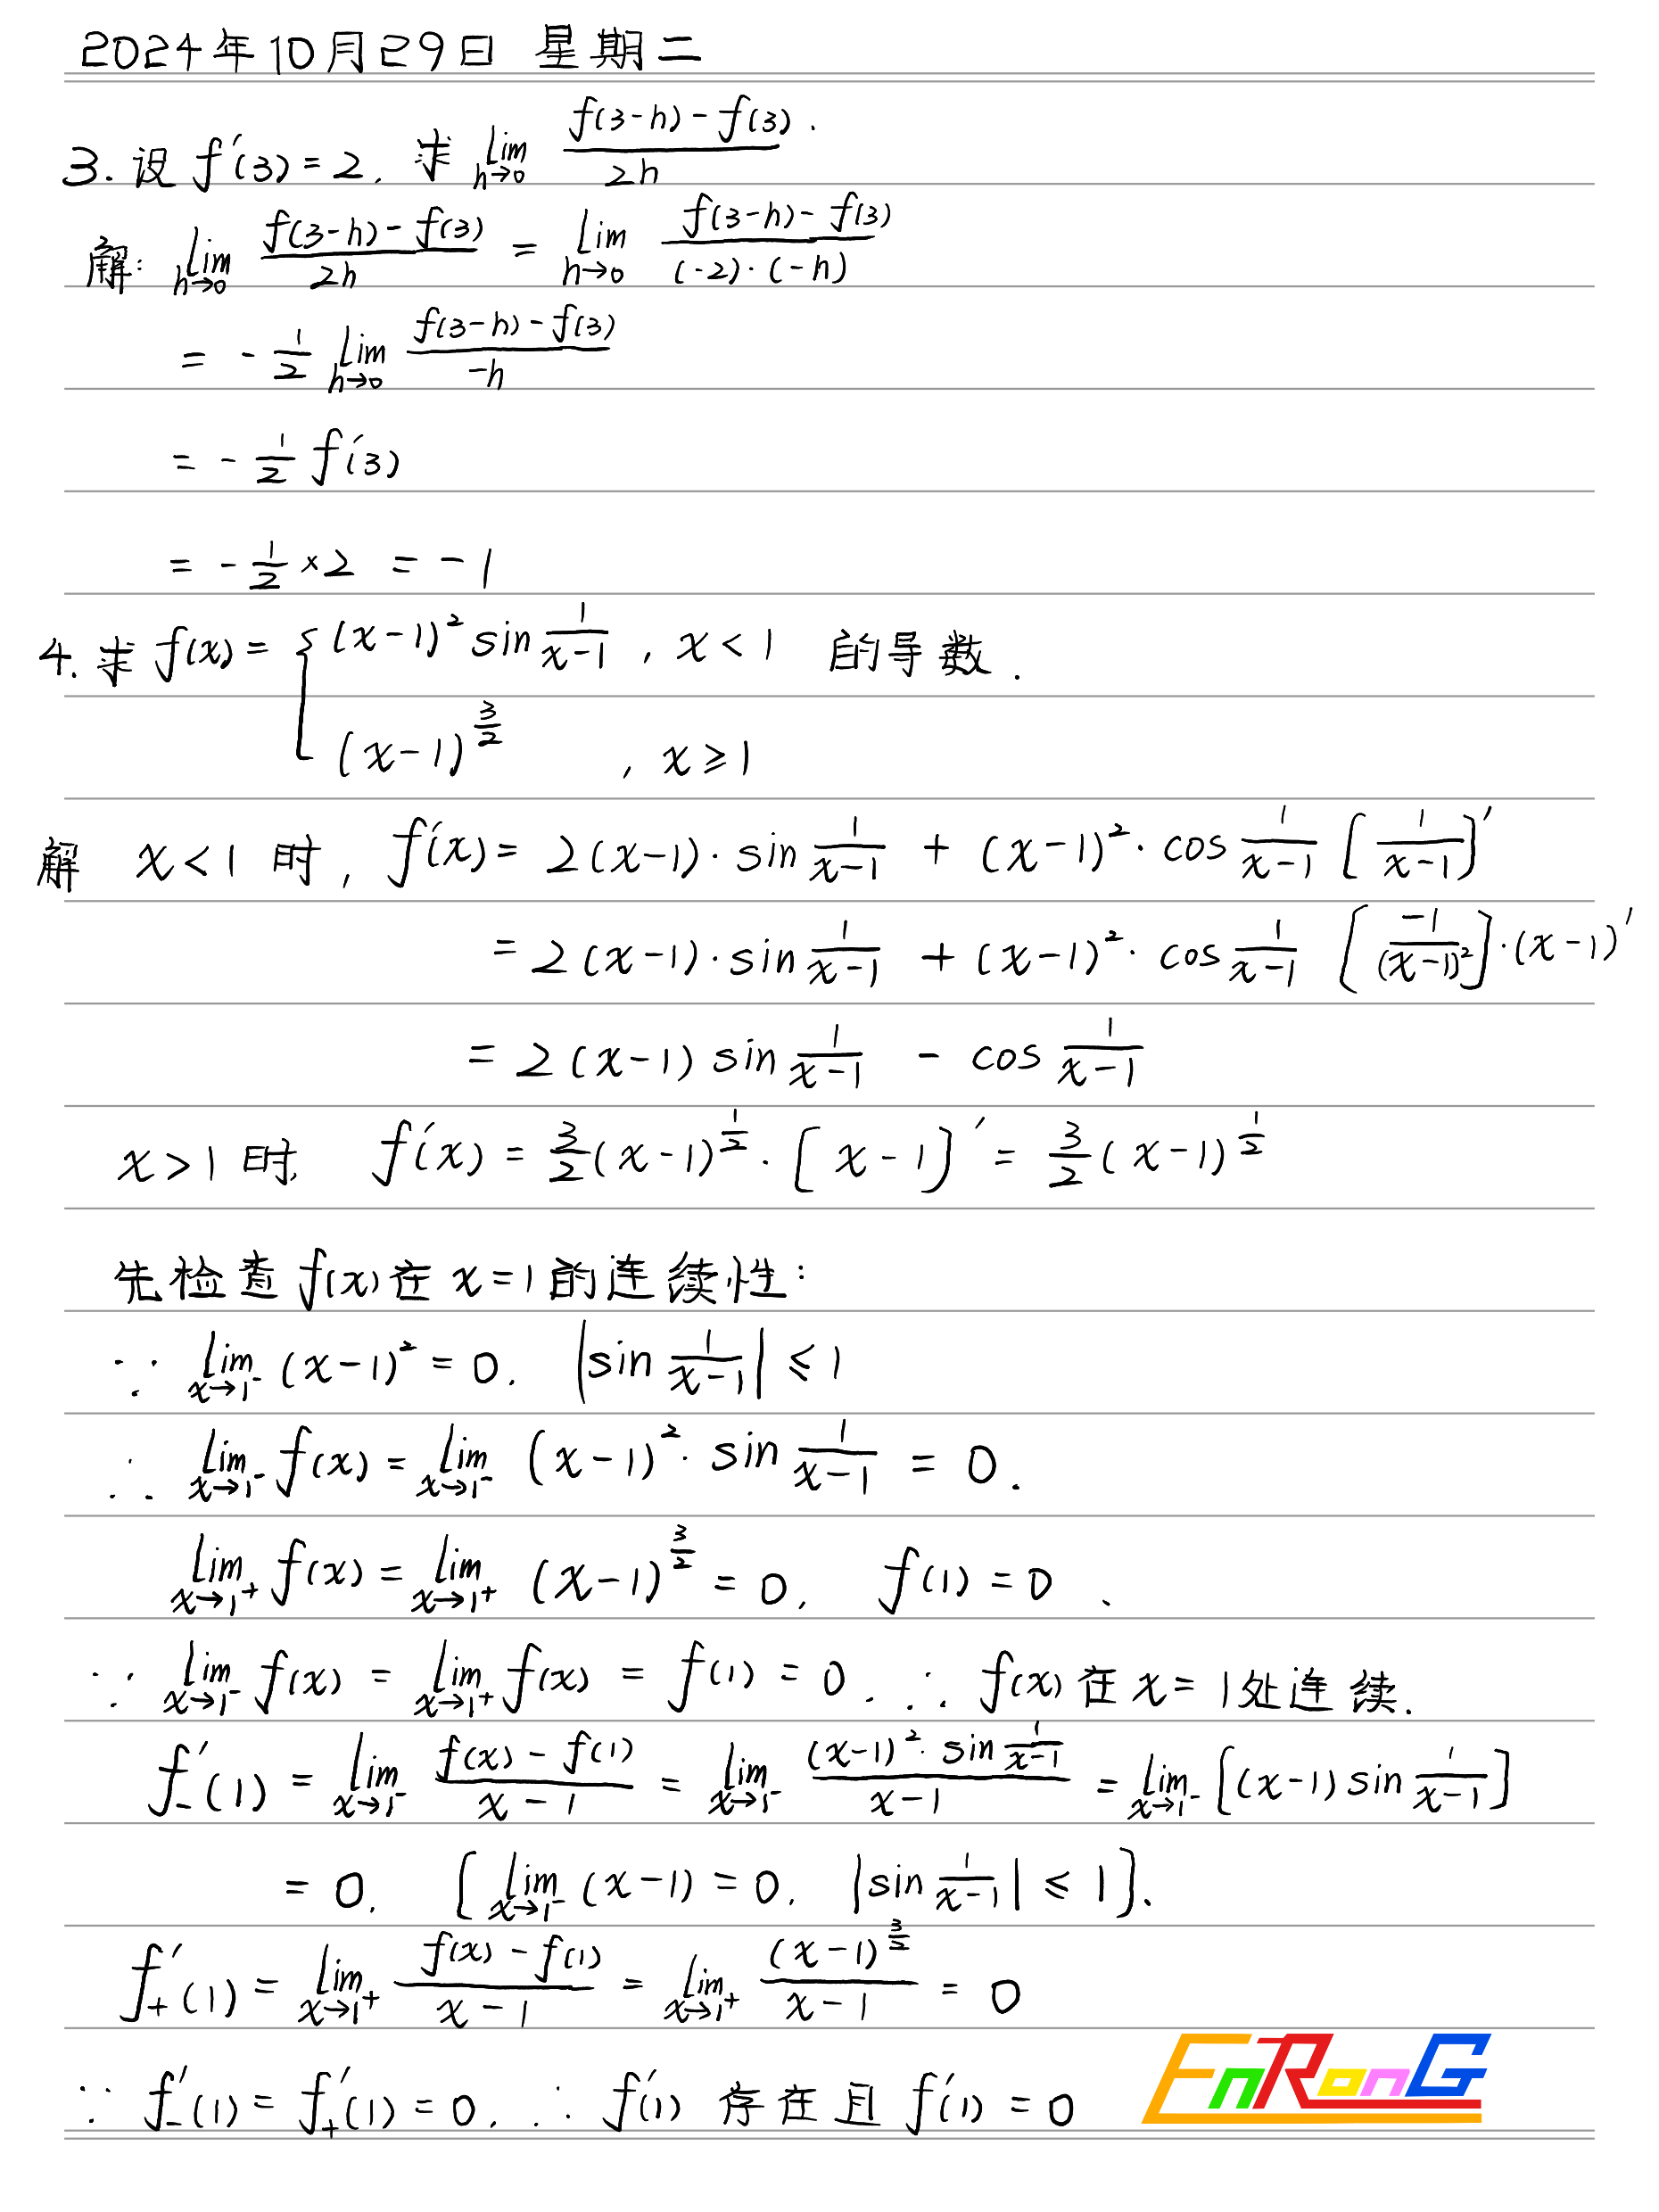 2024年10月29日 星期二
3. 设 f'(3) = 2, 求 lim_{h→0} \frac{f(3-h) - f(3)}{2h}.
解: lim_{h→0} \frac{f(3-h) - f(3)}{2h} = lim_{h→0} \frac{f(3-h) - f(3)}{(-2)·(-h)}
= -\frac{1}{2} lim_{h→0} \frac{f(3-h) - f(3)}{-h}
= -\frac{1}{2} f'(3)
= -\frac{1}{2} × 2 = -1
4. 求 f(x) = { (x-1)^2 sin\frac{1}{x-1}, x < 1 的导数.
(x-1)^{\frac{3}{2}}, x ≥ 1
解 x < 1 时, f'(x) = 2(x-1)·sin\frac{1}{x-1} + (x-1)^2·cos\frac{1}{x-1} [\frac{1}{x-1}]'
= 2(x-1)·sin\frac{1}{x-1} + (x-1)^2·cos\frac{1}{x-1} [\frac{-1}{(x-1)^2}]·(x-1)'
= 2(x-1) sin\frac{1}{x-1} - cos\frac{1}{x-1}
x > 1 时, f'(x) = \frac{3}{2}(x-1)^{\frac{1}{2}}·[x-1]' = \frac{3}{2}(x-1)^{\frac{1}{2}}
先检查 f(x) 在 x=1 的连续性:
∵ lim_{x→1^-} (x-1)^2 = 0, |sin\frac{1}{x-1}| ≤ 1
∴ lim_{x→1^-} f(x) = lim_{x→1^-} (x-1)^2·sin\frac{1}{x-1} = 0.
lim_{x→1^+} f(x) = lim_{x→1^+} (x-1)^{\frac{3}{2}} = 0, f(1) = 0.
∵ lim_{x→1^-} f(x) = lim_{x→1^+} f(x) = f(1) = 0, ∴ f(x) 在 x = 1处连续.
f_-'(1) = lim_{x→1^-} \frac{f(x) - f(1)}{x-1} = lim_{x→1^-} \frac{(x-1)^2·sin\frac{1}{x-1}}{x-1} = lim_{x→1^-} [(x-1) sin\frac{1}{x-1}]
= 0, [lim_{x→1^-} (x-1) = 0, |sin\frac{1}{x-1}| ≤ 1].
f_+'(1) = lim_{x→1^+} \frac{f(x) - f(1)}{x-1} = lim_{x→1^+} \frac{(x-1)^{\frac{3}{2}}}{x-1} = 0
∵ f_-'(1) = f_+'(1) = 0, ∴ f'(1) 存在且 f'(1) = 0
EnRonG